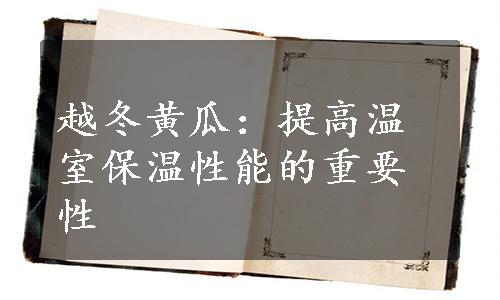 越冬黄瓜：提高温
室保温性能的重要
性